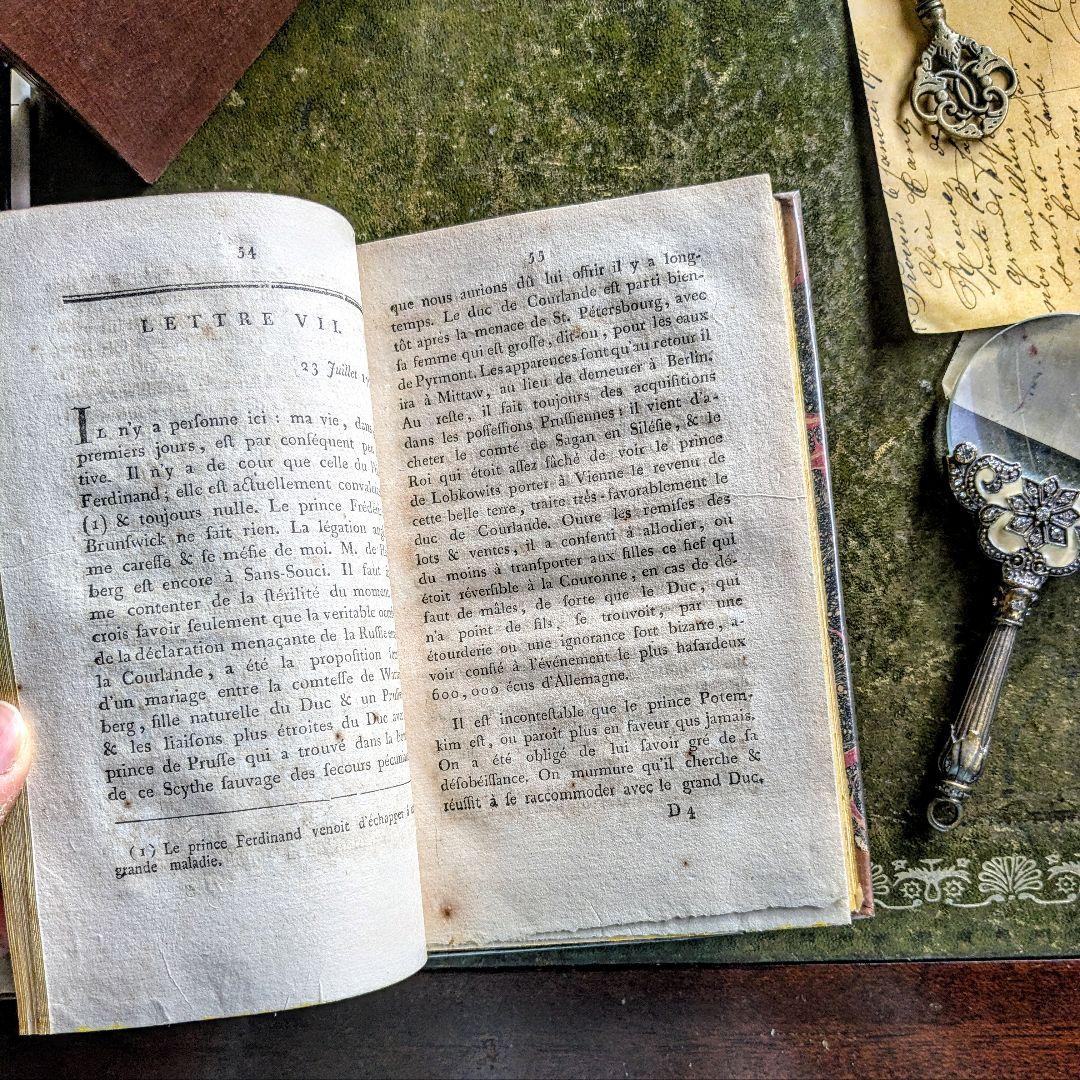 54
LETTRE VII.
23 Juillet
IL n'y a perſonne ici : ma vie, dans
premiers jours, eſt par conſéquent
tive. Il n'y a de cour que celle du
Ferdinand ; elle eſt actuellement
(1) & toujours nulle. Le prince
Brunſwick ne fait rien. La légation
me careſſe & ſe méfie de moi. M. de
berg eſt encore à Sans-Souci. Il faut
me contenter de la ſtérilité du moment.
crois ſavoir ſeulement que la veritable
de la déclaration menaçante de la Ruſſie
la Courlande, a été la propoſition
d'un mariage entre la comteſſe de
berg, fille naturelle du Duc & un
& les liaiſons plus étroites du Duc avec
prince de Pruſſe qui a trouvé dans la
de ce Scythe ſauvage des ſecours
(1) Le prince Ferdinand venoit d'échapper à
grande maladie.
55
que nous aurions dû lui offrir il y a long-
temps. Le duc de Courlande eſt parti bien-
tôt apres la menace de St. Pétersbourg, avec
ſa femme qui eſt groſſe, dit-on, pour les eaux
de Pyrmont. Les apparences ſont qu'au retour il
ira à Mittaw, au lieu de demeurer à Berlin.
Au reſte, il fait toujours des acquiſitions
dans les poſſeſſions Pruſſiennes : il vient d'a-
cheter le comté de Sagan en Siléſie, & le
Roi qui étoit aſſez fâché de voir le prince
de Lobkowits porter à Vienne le revenu de
cette belle terre, traite très-favorablement le
duc de Courlande. Outre les remiſes des
lots & ventes, il a conſenti à allodier, ou
du moins à tranſporter aux filles ce fief qui
étoit réverſible à la Couronne, en cas de dé-
faut de mâles, de ſorte que le Duc, qui
n'a point de fils, ſe trouvoit, par une
étourderie ou une ignorance fort bizarre, a-
voir confié à l'événement le plus haſardeux
600,000 écus d'Allemagne.
Il eſt inconteſtable que le prince Potem-
kim eſt, ou paroit plus en faveur qus jamais.
On a été obligé de lui ſavoir gre de ſa
déſobéiſſance. On murmure qu'il cherche &
réuſſit à ſe raccommoder avec le grand Duc.
D 4